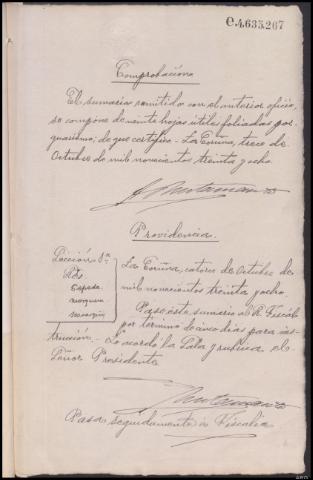 C.4.635.267
Comprobación
El sumario remitido con el anterior oficio,
se compone de veinte hojas útiles foliadas por
guarismo; de que certifico - La Coruña, trece de
Octubre de mil novecientos treinta y ocho
Providencia.
Sección 1ª
Sres.
Cepeda
La Coruña, catorce de Octubre de
mil novecientos treinta y ocho.
Pase este sumario al R. Fiscal
por término de cinco días para ins-
trucción.- Lo acordó la Sala y rubrica el
Señor Presidente
Pasa seguidamente a Fiscalía